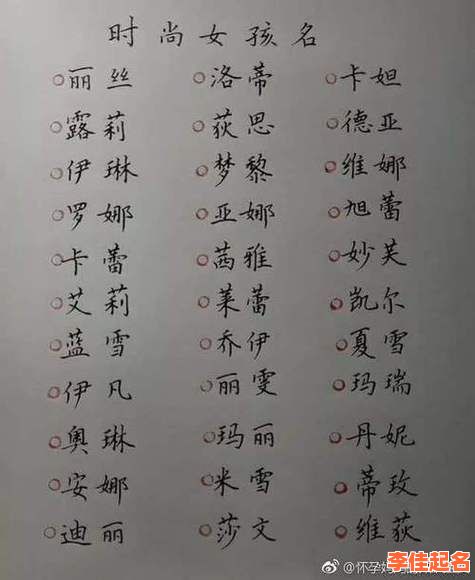 时尚女孩名
丽丝 洛蒂 卡妲
露莉 荻思 德亚
伊琳 梦黎 维娜
罗娜 亚娜 旭蕾
卡蕾 茜雅 妙芙
艾莉 莱蕾 凯尔
蓝雪 乔伊 夏雪
伊凡 丽雯 玛瑞
奥琳 玛丽 丹妮
安娜 米雪 蒂玫
迪丽 莎文 维荻
@怀孕妈
李佳起名